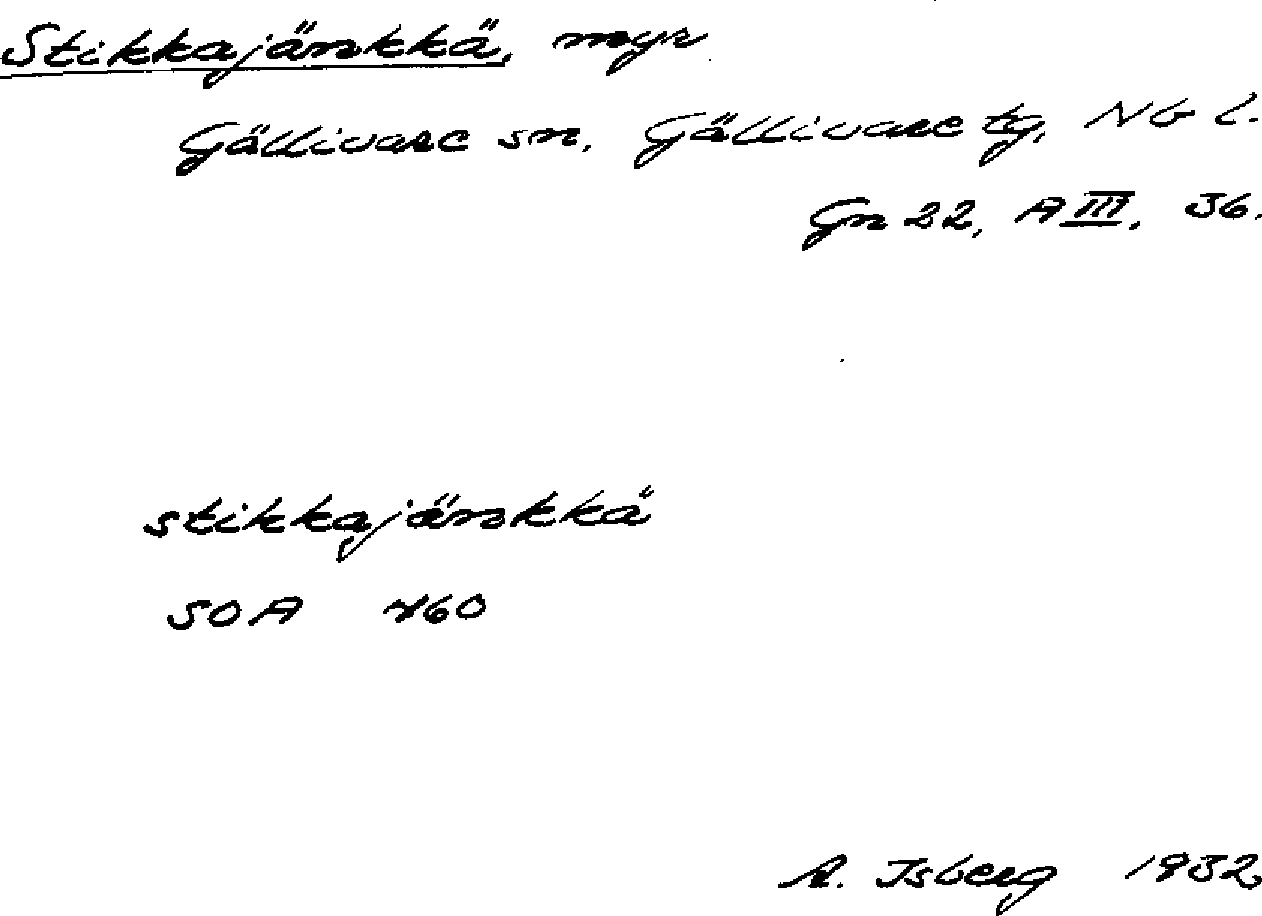 Stikkajänkkä, myr
Gällivare sn. Gällivare tg, Nb l.
Gn 22, A III. 36.
stikkajänkkä
SOA 460
A. Isberg 1932